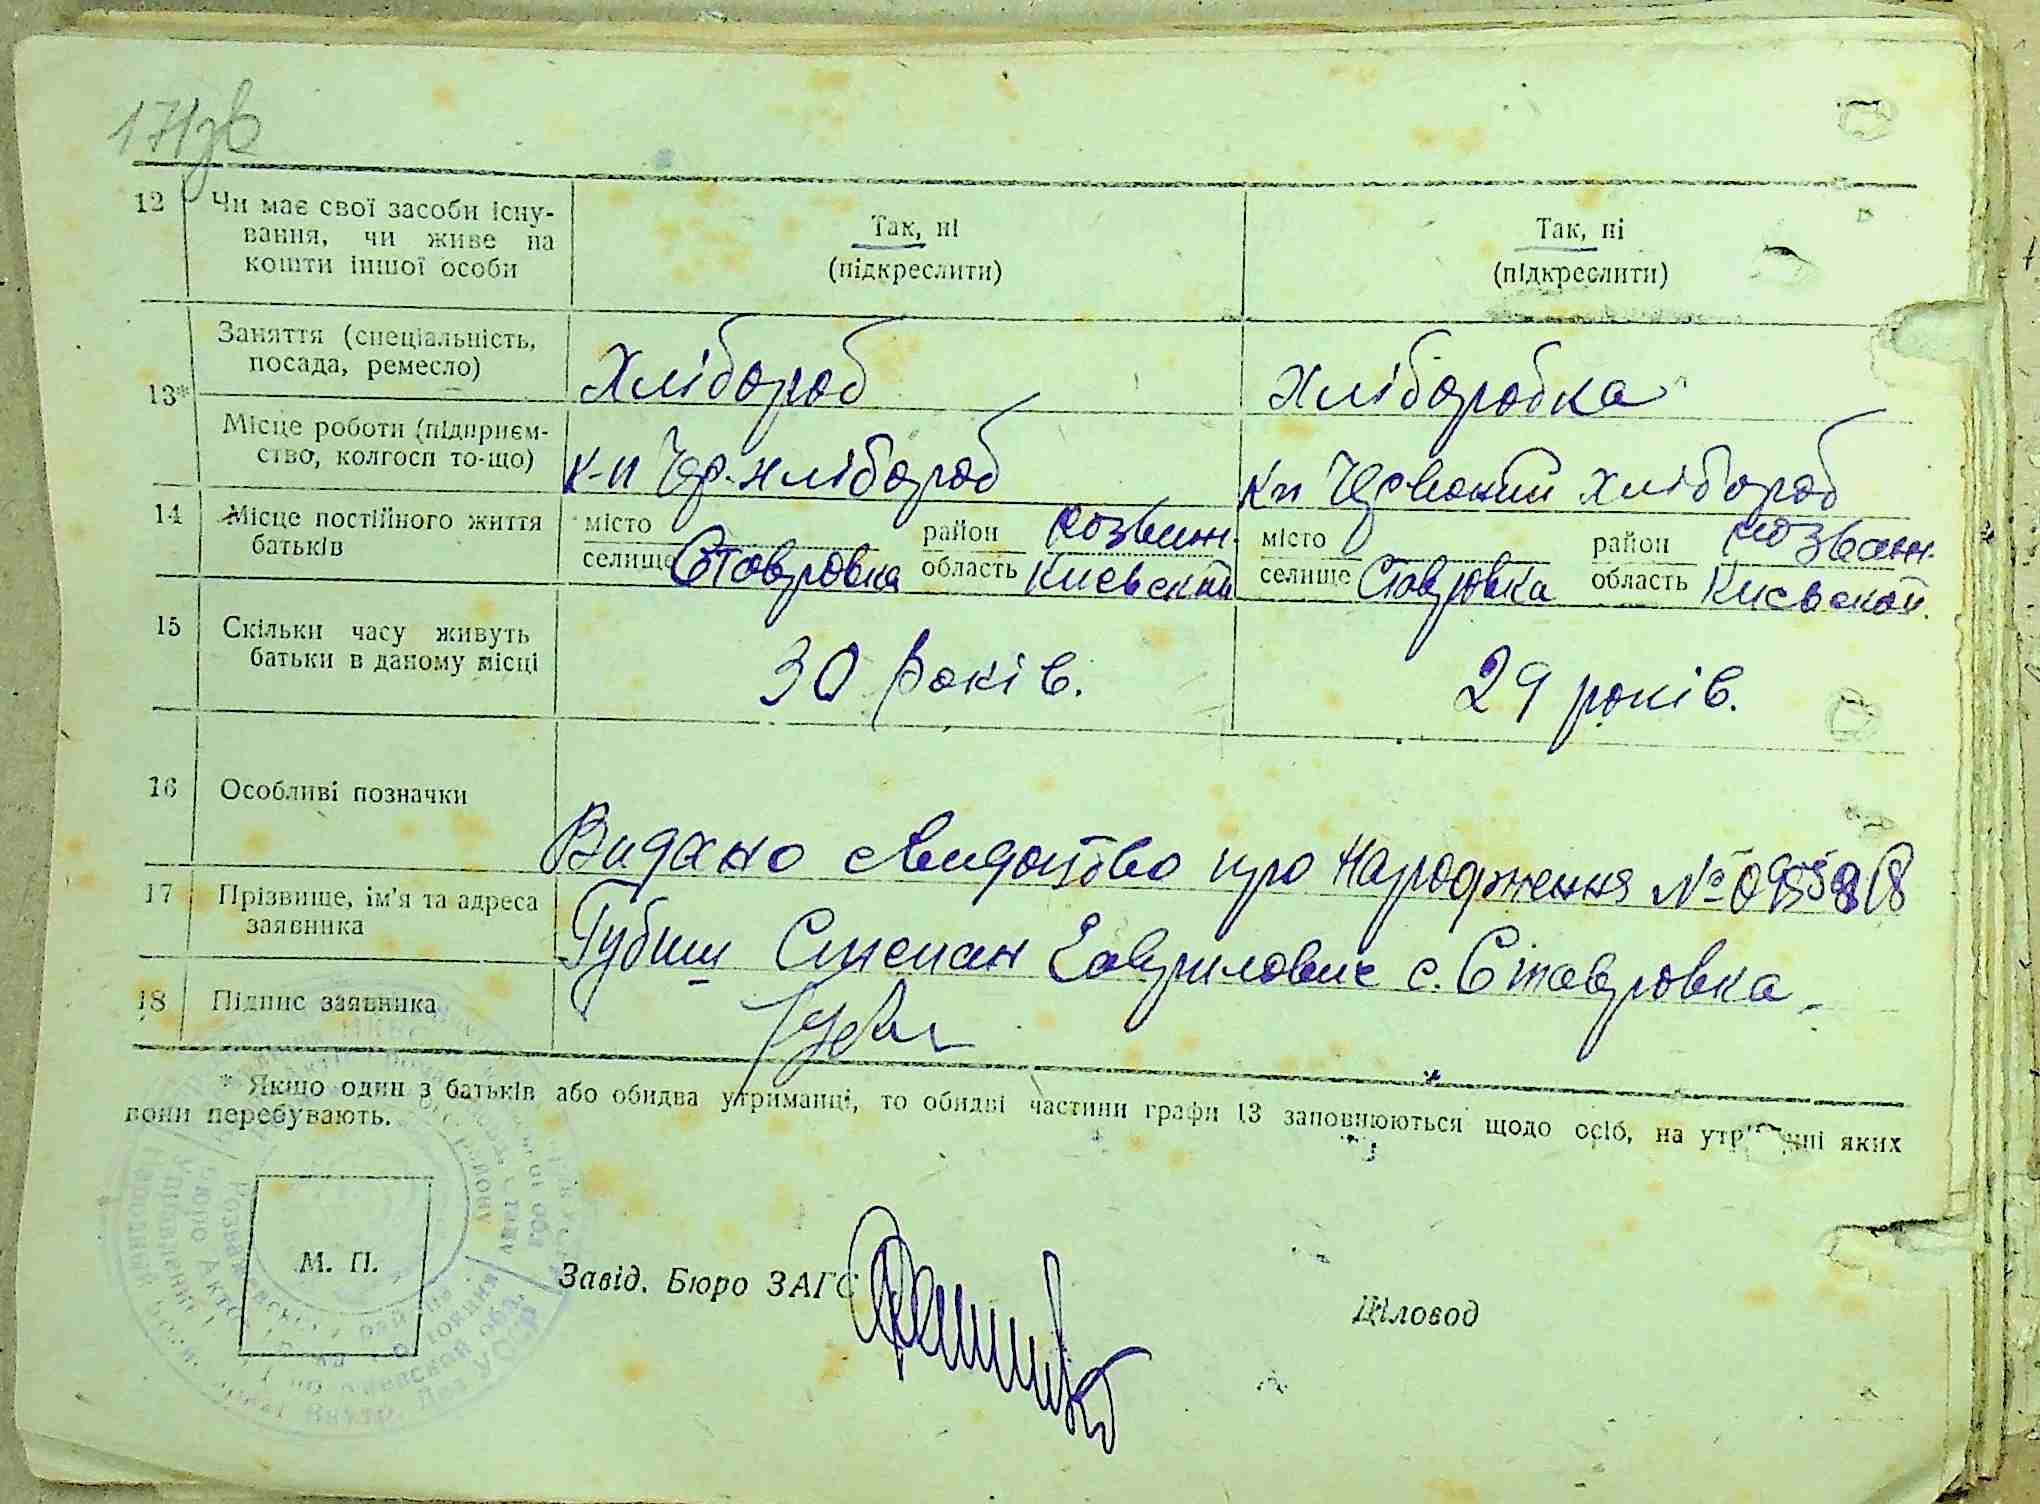 171зв
12 Чи має свої засоби існу- Так, ні Так, ні
вання, чи живе на
кошти іншої особи (підкреслити) (підкреслити)
13* Заняття (спеціальність, Хлібороб Хліборобка
посада, ремесло)
Місце роботи (підприєм- к-п Чер. хлібороб кп Червоний Хлібороб
ство, колгосп то-що)
14 Місце постійного життя місто район Розваж. місто район Розваж.
батьків селище Ставровка область Киевской селище Ставровка область Киевской.
15 Скільки часу живуть 30 років. 29 років.
батьки в даному місці
16 Особливі позначки
Видано свидотство про народження №
17 Прізвище, ім'я та адреса Губиш Степан Гаврилович с. Ставровка
заявника
18 Підпис заявника
* Якщо один з батьків або обидва утриманці, то обидві частини графи 13 заповнюються щодо осіб, на утриманні яких
вони перебувають.
М. П.
Завід. Бюро ЗАГС Діловод